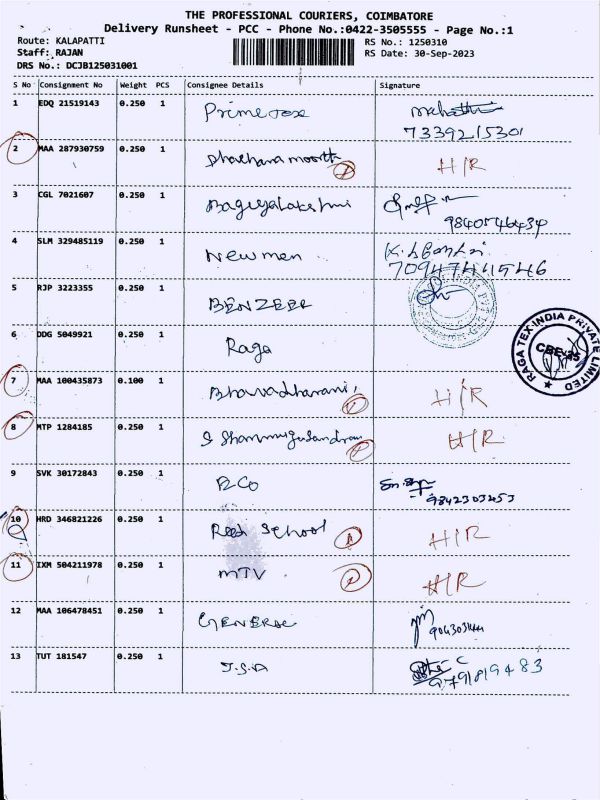 THE PROFESSIONAL COURIERS, COIMBATORE
Delivery Runsheet - PCC - Phone No.:0422-3505555 - Page No.:1
Route: KALAPATTI RS No.: 1250310
Staff: RAJAN RS Date: 30-Sep-2023
DRS No.: DCJB125031001
S No Consignment No Weight PCS Consignee Details Signature
1 EDQ 21519143 0.250 1
7339215301
2 MAA 287930759 0.250 1 H/R
3 CGL 7021607 0.250 1 Bagyalakshmi
9840546434
4 SLM 329485119 0.250 1 Newmen
5 RJP 3223355 0.250 1 BENZEER
6 DDG 5049921 0.250 1 Raga
RAGA TEX INDIA PRIVATE LIMITED
CBE-35
7 MAA 100435873 0.100 1 Bhavadharani H/R
8 MTP 1284185 0.250 1 H/R
9 SVK 30172843 0.250 1
9842303453
10 HRD 346821226 0.250 1 School H/R
11 IXM 504211978 0.250 1 MTV H/R
12 MAA 106478451 0.250 1
13 TUT 181547 0.250 1
9791819483